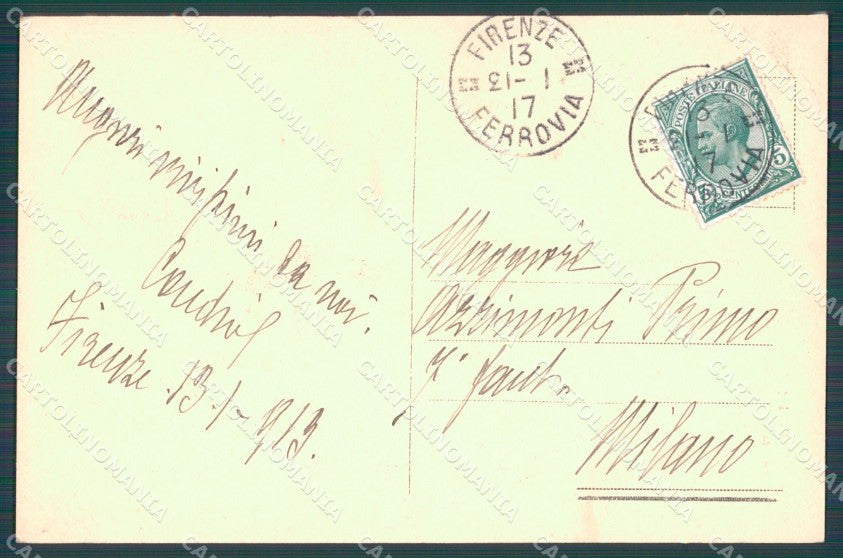 Auguri vivissimi da noi.
Firenze. 13.1-913.
FIRENZE
13
21-1
17
FERROVIA
POSTE ITALIANE
FERROVIA
Maggiore
Azzimonti Primo
7° fant.
Milano
CARTOLINOMANIA